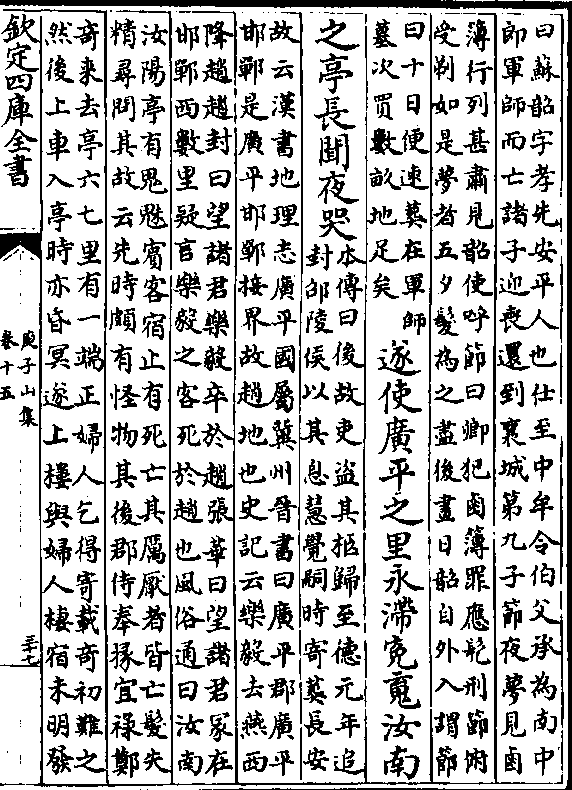 曰蘇韶字孝先安平人也仕至中牟令伯父承為南中
郎軍師而亡諸子迎喪還到襄城第九子節夜夢見鹵
簿行列甚肅見韶使呼節曰卿犯鹵簿罪應髡刑節俯
受剃如是夢者五夕髮為之盡後晝日韶自外入謂節
曰十日便速葬在軍師
墓次買數畝地足矣
遂使廣平之里永滯寃䰟汝南
之亭長聞夜哭
本傳曰後故吏盜其柩歸至德元年追
封邵陵侯以其息慧覺嗣時寄葬長安
故云漢書地理志廣平國屬冀州晉書曰廣平郡廣平
邯鄲是廣平邯鄲接界故趙地也史記云樂毅去燕西
降趙趙封曰望諸君樂毅卒於趙張華曰望諸君冢在
邯鄲西數里疑言樂毅之客死於趙也風俗通曰汝南
汝陽亭有鬼魅賓客宿止有死亡其厲厭者皆亡髮失
精尋問其故云先時頗有怪物其後郡侍奉掾宜祿鄭
奇來去亭六七里有一端正婦人乞得寄載奇初難之
然後上車入亭時亦昏冥遂上樓與婦人棲宿未明發
欽定四庫全書
庾子山集
卷十五
三十七